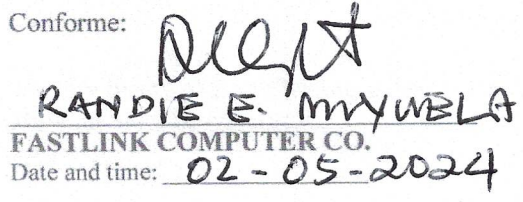 Conforme:
RANDIE E.
FASTLINK COMPUTER CO.
Date and time: 02-05-2024